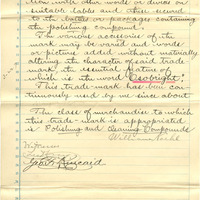 tion with other words or devices on
suitable labels and then secured
to the bottles or packages containing
the polishing compound.
The various accessories of the
mark may be varied and words
or picture added without materially
altering the character of said trade
mark the essential feature of
which is the word "Osobright."
This trade-mark has been con-
tinuously used by me since about
The class of merchandise to which
this trade-mark is appropriated
is Polishing and Cleaning Compounds
Kincaid